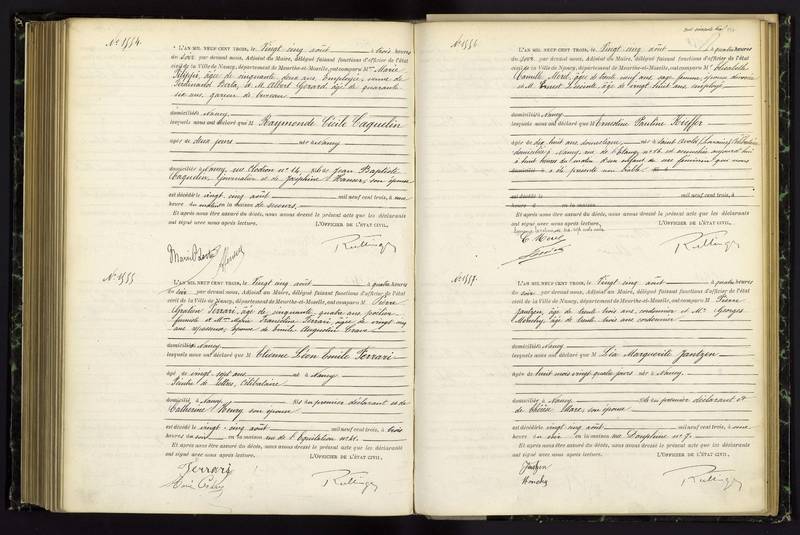 N° 1554.
L'AN MIL NEUF CENT TROIS, le Vingt cinq août à trois heures
du soir par devant nous, Adjoint au Maire, délégué faisant fonctions d'officier de l'état
civil de la Ville de Nancy, département de Meurthe-et-Moselle, ont comparu Me Marie
Filippi, âgée de cinquante deux ans, Employée, veuve de
Ferdinand Berla, et M. Albert Gérard, âgé de quarante
six ans, garçon de bureau
domiciliés Nancy
lesquels nous ont déclaré que M Raymonde Cécile Caquelin
âgée de deux jours née à Nancy
domiciliée à Nancy, rue Clodion n° 14, fille de Jean Baptiste
Caquelin, journalier et de Joséphine Hauser, son épouse
est décédée le vingt-cinq août mil neuf cent trois, à une
heure du matin en la maison de secours
Et après nous être assuré du décès, nous avons dressé le présent acte que les déclarants
ont signé avec nous après lecture. L'OFFICIER DE L'ÉTAT CIVIL,
N° 1555
L'AN MIL NEUF CENT TROIS, le Vingt cinq août à quatre heures
du soir par devant nous, Adjoint au Maire, délégué faisant fonctions d'officier de l'état
civil de la Ville de Nancy, département de Meurthe-et-Moselle, ont comparu M Pierre
Ferrari, âgé de cinquante quatre ans,
et Mme Marie Ferrari, âgée de vingt six
ans épouse de Emile Augustin
domiciliés Nancy
lesquels nous ont déclaré que M Etienne Léon Emile Ferrari
âgé de vingt-sept ans né à Nancy
Peintre de lettres, célibataire
domicilié à Nancy fils du premier déclarant et de
Catherine Henry son épouse
est décédé le vingt-cinq août mil neuf cent trois, à trois
heures du soir en la maison rue de l'Equitation n° 61
Et après nous être assuré du décès, nous avons dressé le présent acte que les déclarants
ont signé avec nous après lecture. L'OFFICIER DE L'ÉTAT CIVIL,
Ferrari
N° 1556.
L'AN MIL NEUF CENT TROIS, le Vingt cinq août à quatre heures
du soir par devant nous, Adjoint au Maire, délégué faisant fonctions d'officier de l'état
civil de la Ville de Nancy, département de Meurthe-et-Moselle, ont comparu Me Elisabeth
Camille Morel, âgée de trente neuf ans, sage femme, épouse divorcée
et M. Ernest Lhuinte, âgé de vingt huit ans employé
domiciliés Nancy
lesquels nous ont déclaré que M Ernestine Pauline Kieffer
âgée de dix huit ans domestique, née à Saint Avold (Lorraine)
domiciliée à Nancy, rue de l'Etang n° 16 est accouchée aujourd'hui
à huit heures du matin d'un enfant de sexe féminin que nous
a été présenté sans vie
est décédé le mil neuf cent trois, à
heure en la maison
Et après nous être assuré du décès, nous avons dressé le présent acte que les déclarants
ont signé avec nous après lecture. L'OFFICIER DE L'ÉTAT CIVIL,
C. Morel
N° 1557.
L'AN MIL NEUF CENT TROIS, le Vingt cinq août à quatre heures
du soir par devant nous, Adjoint au Maire, délégué faisant fonctions d'officier de l'état
civil de la Ville de Nancy, département de Meurthe-et-Moselle, ont comparu M Pierre
Jantzen, âgé de trente trois ans, cordonnier et M. Georges
âgé de trente trois ans cordonnier
domiciliés Nancy
lesquels nous ont déclaré que M Léa Marguerite Jantzen
âgée de huit mois vingt quatre jours née à Nancy
domiciliée à Nancy fille du premier déclarant et
de Thérèse Marc, son épouse
est décédée le vingt cinq août mil neuf cent trois, à une
heure du soir en la maison rue Dauphine n° 7
Et après nous être assuré du décès, nous avons dressé le présent acte que les déclarants
ont signé avec nous après lecture. L'OFFICIER DE L'ÉTAT CIVIL,
Jantzen